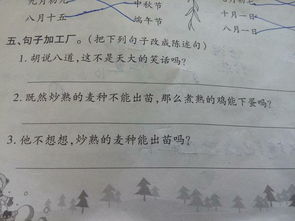 九月初九 中秋节 十月一日
八月十五 端午节 八月一日
五、句子加工厂。(把下列句子改成陈述句)
1. 胡说八道,这不是天大的笑话吗?
2. 既然炒熟的麦种不能出苗,那么煮熟的鸡能下蛋吗?
3. 他不想想,炒熟的麦种能出苗吗?